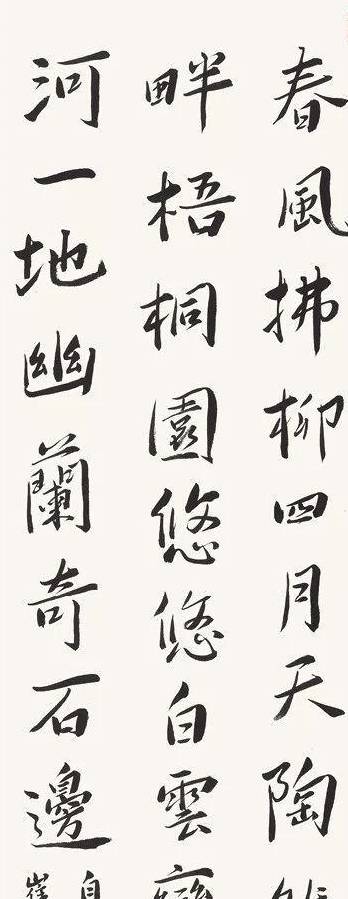 春風拂柳四月天陶
畔梧桐園悠悠白雲
河一地幽蘭奇石邊
自
崔